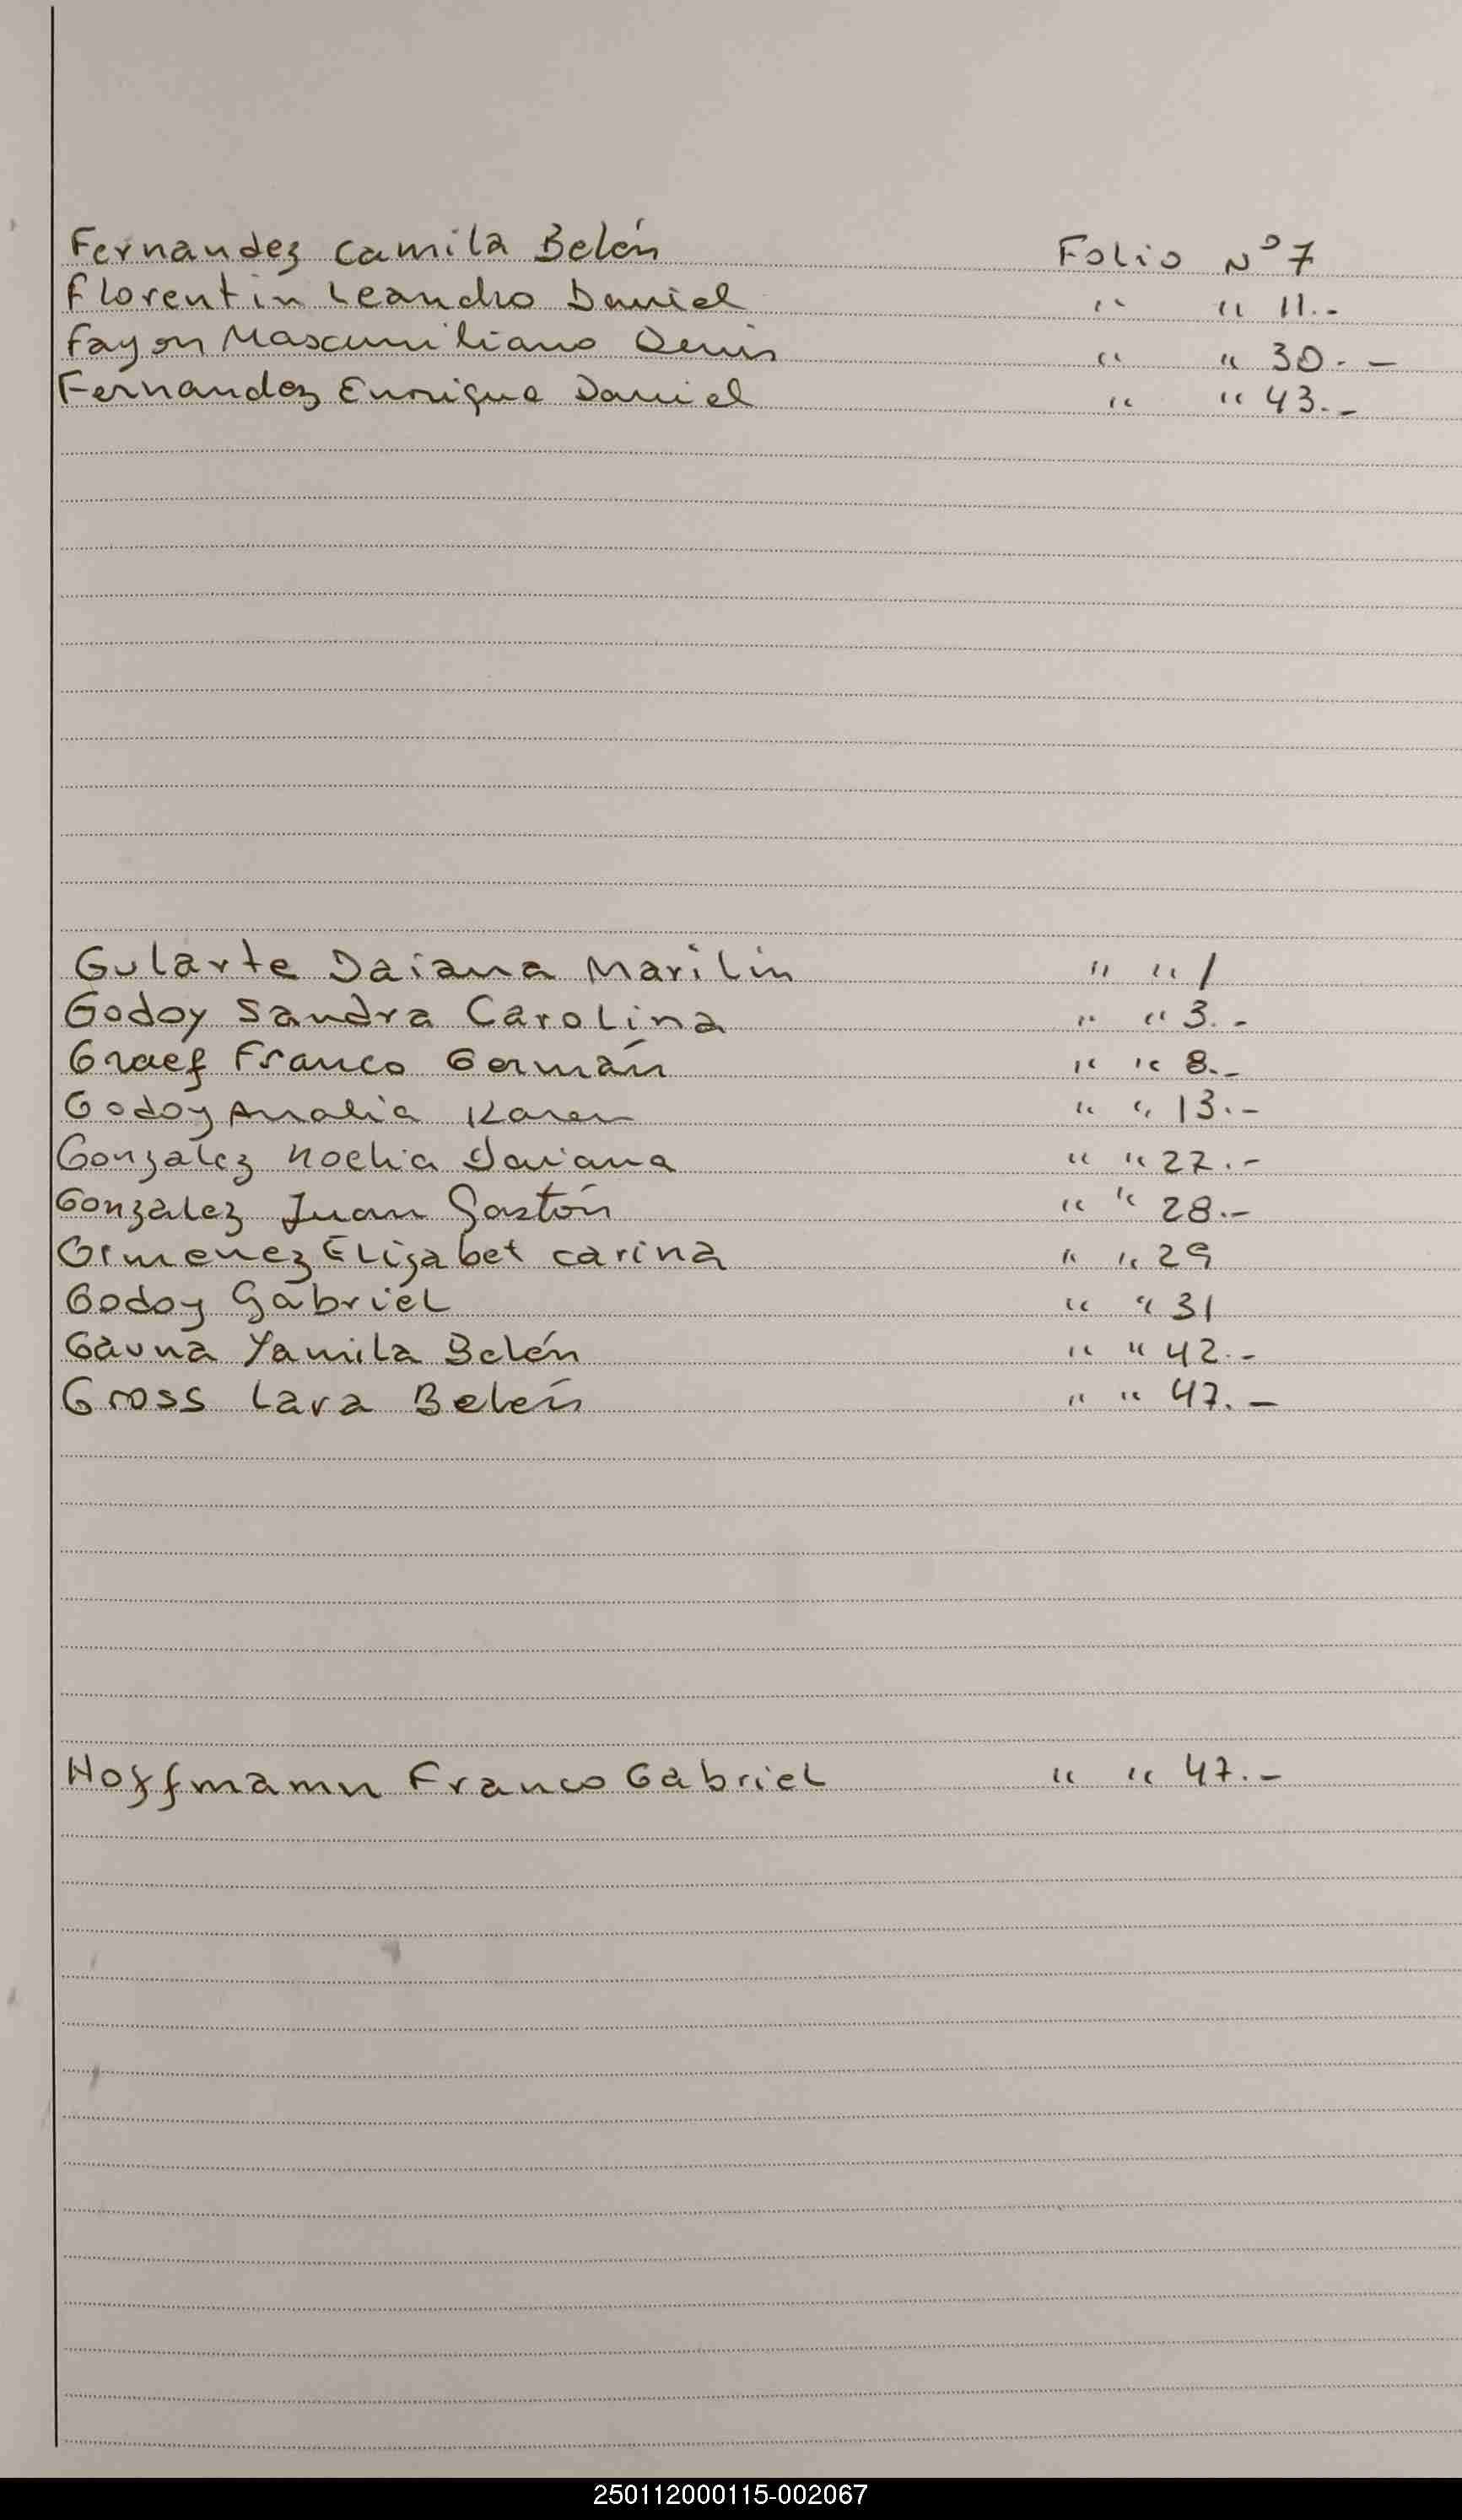 Fernandez Camila Belén Folio N° 7
Florentín Leandro Daniel " " 11.-
Fayon Mascimiliano Denis " " 30.-
Fernandez Enrique Daniel " " 43.-
Gularte Daiana Marilin " " 1
Godoy Sandra Carolina " " 3.-
Graef Franco Germán " " 8.-
Godoy Analia Karen " " 13.-
Gonzalez Noelia Daiana " " 22.-
Gonzalez Juan Gastón " " 28.-
Gimenez Elizabet Carina " " 29
Godoy Gabriel " " 31
Gauna Yamila Belén " " 42.-
Gross Lara Belén " " 47.-
Hoffmamn Franco Gabriel " " 47.-
250112000115-002067